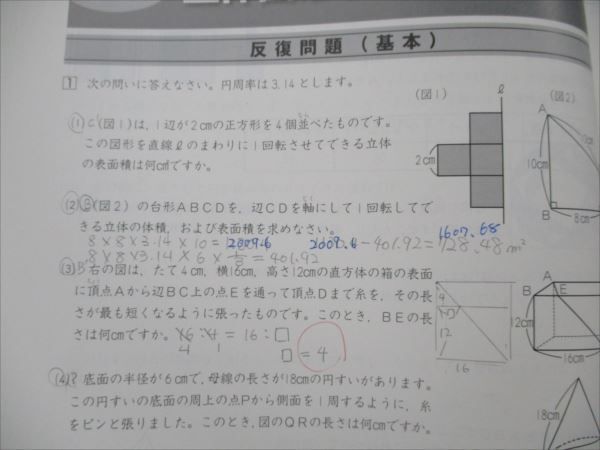 反復問題(基本)
1 次の問いに答えなさい。円周率は3.14とします。
(図1)
ℓ
(図2)
(1) (図1)は,1辺が2cmの正方形を4個並べたものです。
この図形を直線ℓのまわりに1回転させてできる立体
の表面積は何cm²ですか。
2cm
A
10cm
B
8cm
(2) (図2)の台形ABCDを,辺CDを軸にして1回転してで
きる立体の体積,および表面積を求めなさい。
1607.68
8×8×3.14×10=2009.6
2009.6-401.92=
8×8×3.14×6×1/3=401.92
(3) 右の図は,たて4cm,横16cm,高さ12cmの直方体の箱の表面
に頂点Aから辺BC上の点Eを通って頂点Dまで糸を,その長
さが最も短くなるように張ったものです。このとき,BEの長
さは何cmですか。
16:4=16:□
4 1
□=4
4
12
16
A
B
E
12cm
16cm
(4) 底面の半径が6cmで,母線の長さが18cmの円すいがあります。
この円すいの底面の周上の点Pから側面を1周するように,糸
をピンと張りました。このとき,図のQRの長さは何cmですか。
18cm